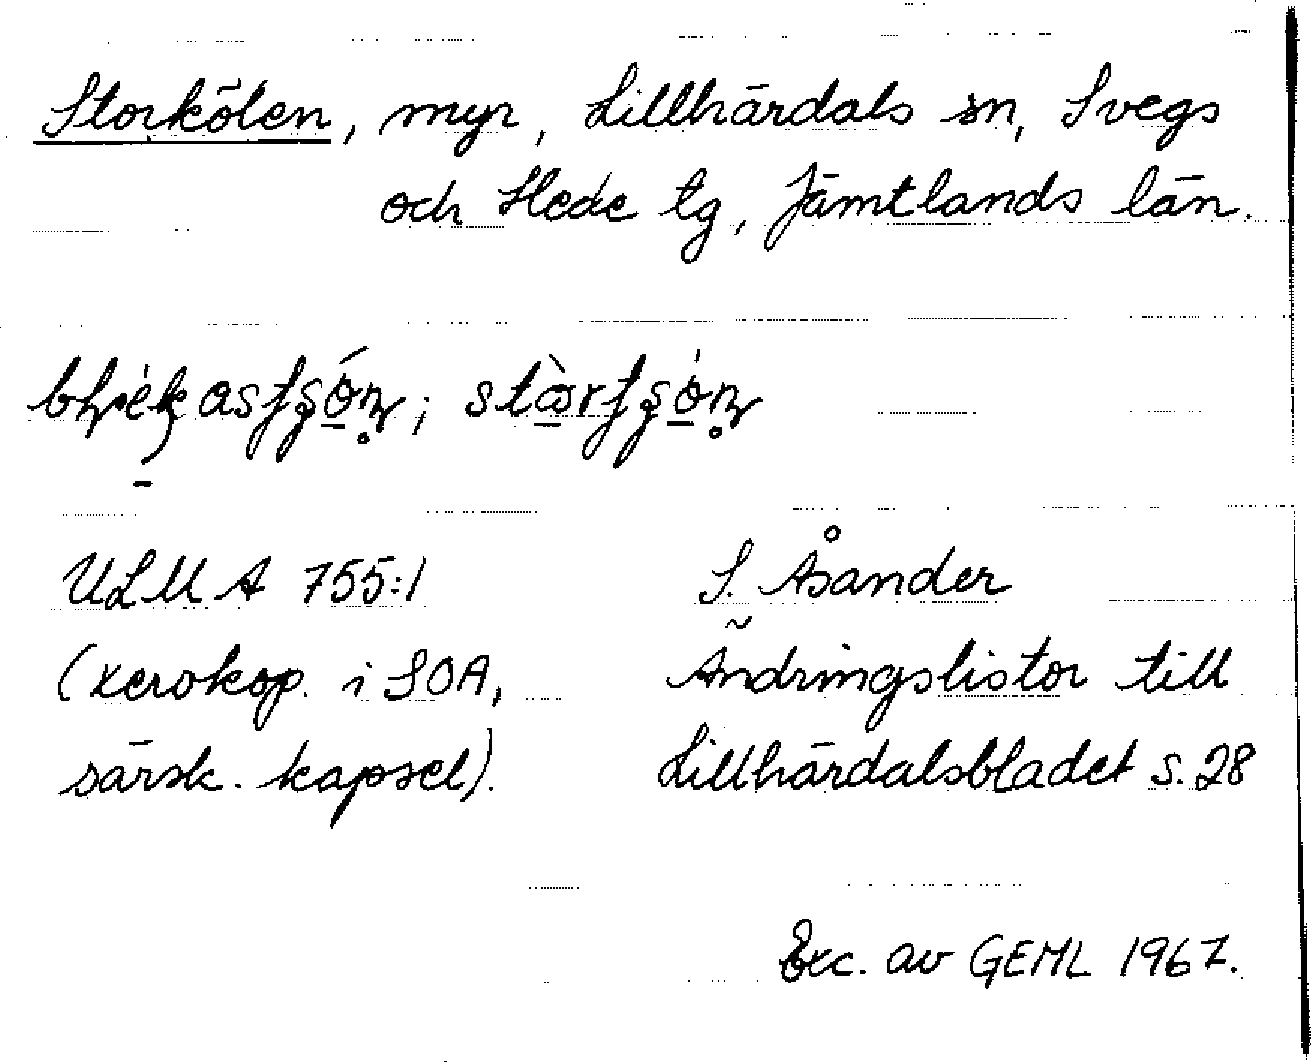 Storkölen, myr, Lillhärdals sn, Svegs
och Hede tg, Jämtlands län.
ULMA 755:1 S. Åsander
(xerokop. i SOA, Ändringslistor till
särsk. kapsel). Lillhärdalsbladet s. 28
Exc. av GEML 1967.